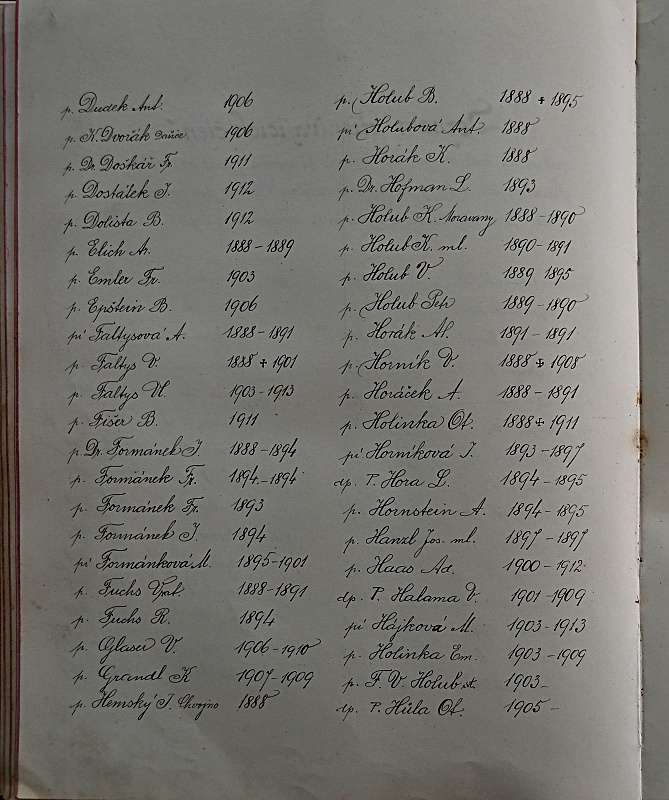 p. Dudek Ant. 1906
p. K. Dvořák Dašice 1906
p. Dr. Doškář Fr. 1911
p. Dostálek J. 1912
p. Dolista B. 1912
p. Elich A. 1888-1889
p. Emler Fr. 1903
p. Epštein B. 1906
pí Faltysová A. 1888-1891
p. Faltys V. 1888 + 1901
p. Faltys Vl. 1903-1913
p. Fišer B. 1911
p. Dr. Formánek J. 1888-1894
p. Formánek Fr. 1894-1894
p. Formánek Fr. 1893
p. Formánek J. 1894
pí Formánková M. 1895-1901
p. Fuchs Vrat. 1888-1891
p. Fuchs R. 1894
p. Glaser V. 1906-1910
p. Grandl K 1907-1909
p. Hemský J. Chvojno 1888
p. Holub B. 1888 + 1895
pí Holubová Ant. 1888
p. Horák K. 1888
p. Dr. Hofman L. 1893
p. Holub K. Moravany 1888-1890
p. Holub K. ml. 1890-1891
p. Holub V. 1889 1895
p. Holub Petr 1889-1890
p. Horák Al. 1891-1891
p. Horník V. 1888 + 1908
p. Horáček A. 1888-1891
p. Holinka Ot. 1888 + 1911
pí Horníková J. 1893-1897
dp. P. Hora L. 1894-1895
p. Hornstein A. 1894-1895
p. Hanzl Jos. ml. 1897-1897
p. Haas Ad. 1900-1912
dp. P. Halama V. 1901-1909
pí Hájková M. 1903-1913
p. Holinka Em. 1903-1909
p. F. V. Holub st. 1903-
dp. P. Hůla Ot. 1905-